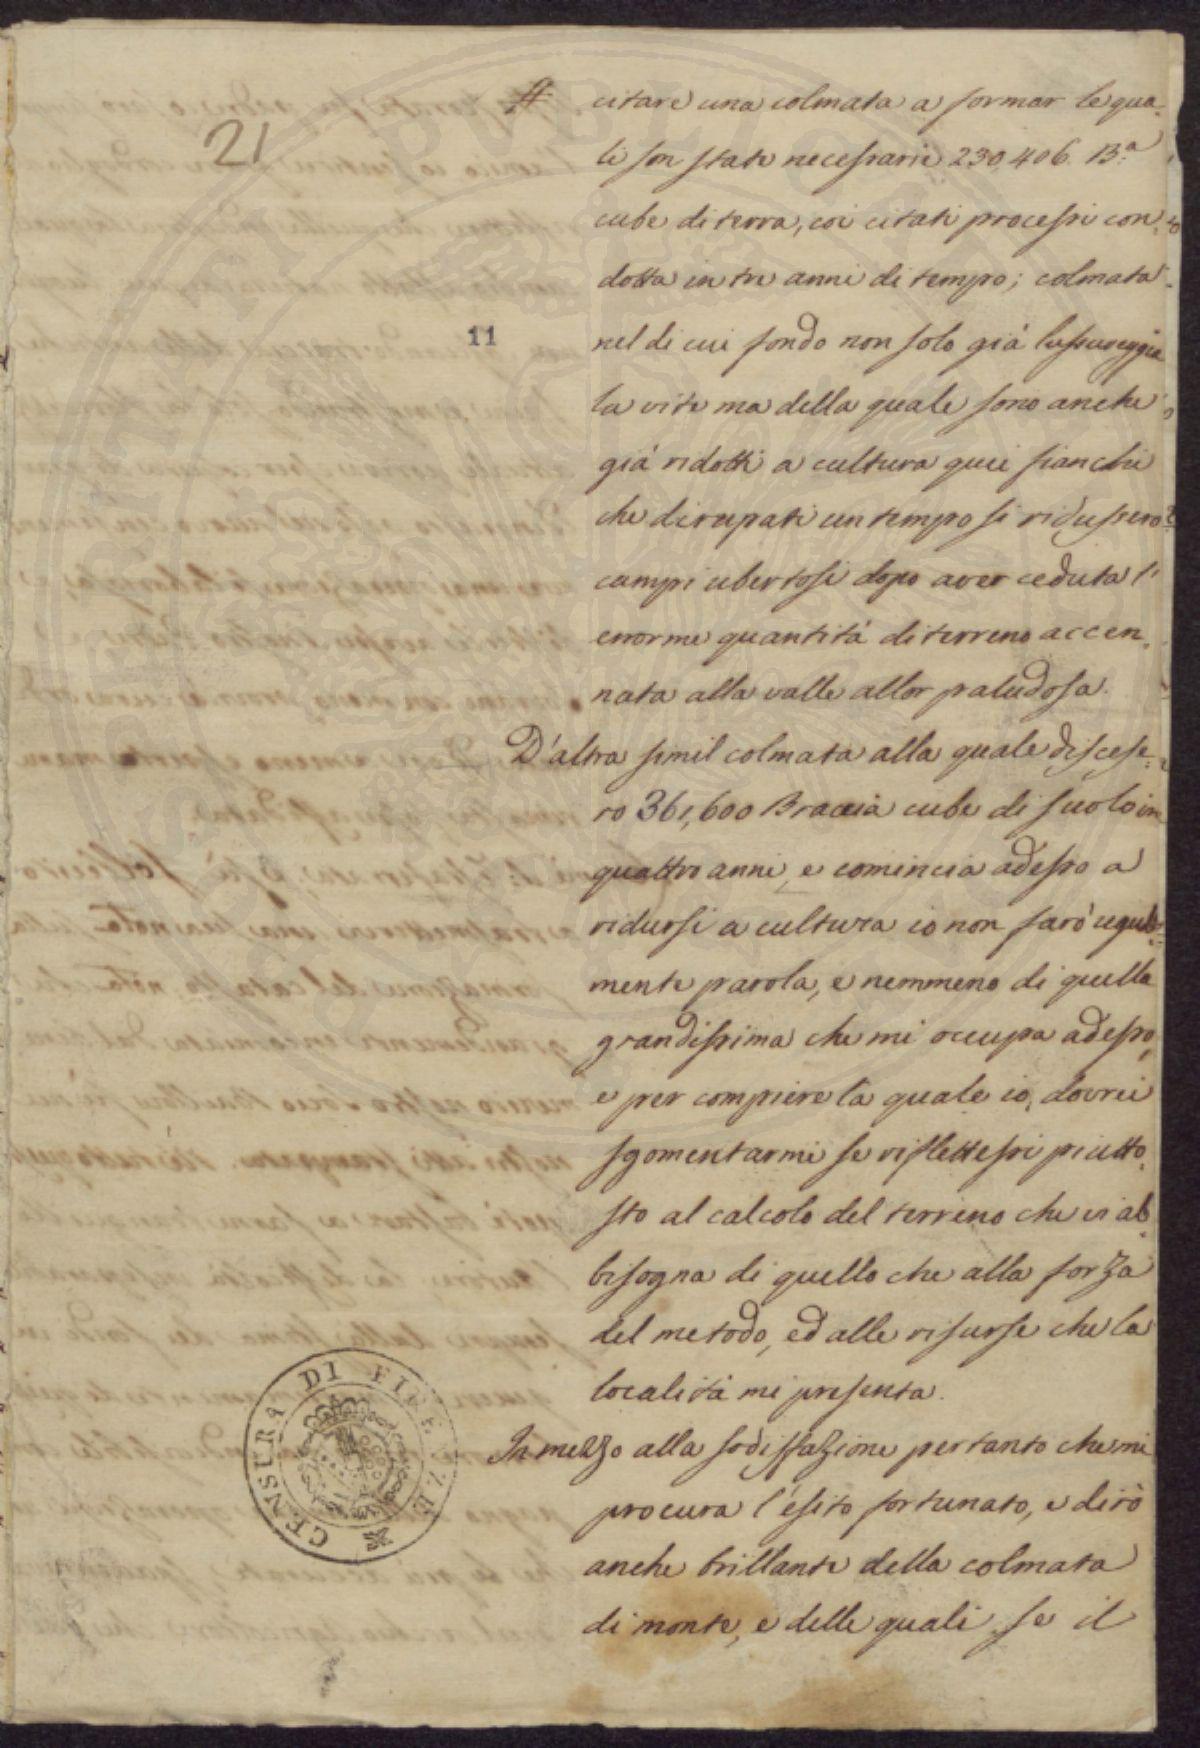 #
citare una colmata a formar le qua-
21
li son state necessarie 230,406. B.ª
cube di terra, coi citati processi con-
dotta in tre anni di tempo; colmata
11
nel di cui fondo non solo già lussureggia
la vite ma della quale sono anche
già ridotti a cultura quei fianchi
che dirupati un tempo si ridussero
campi ubertosi dopo aver ceduta l'
enorme quantità di terreno accen-
nata alla valle allor paludosa.
D'altra simil colmata alla quale discese-
ro 361,600 Braccia cube di suolo in
quattro anni, e comincia adesso a
ridursi a cultura io non farò ugual-
mente parola, e nemmeno di quella
grandissima che mi occupa adesso,
e per compiere la quale io, dovrei
sgomentarmi se riflettessi piutto-
sto al calcolo del terreno che vi ab-
bisogna di quello che alla forza
del metodo, ed alle risurse che la
località mi presenta.
In mezzo alla sodisfazione pertanto che mi
procura l'esito fortunato, e dirò
anche brillante della colmata
di monte, e delle quali se il
CENSURA DI FIRENZE